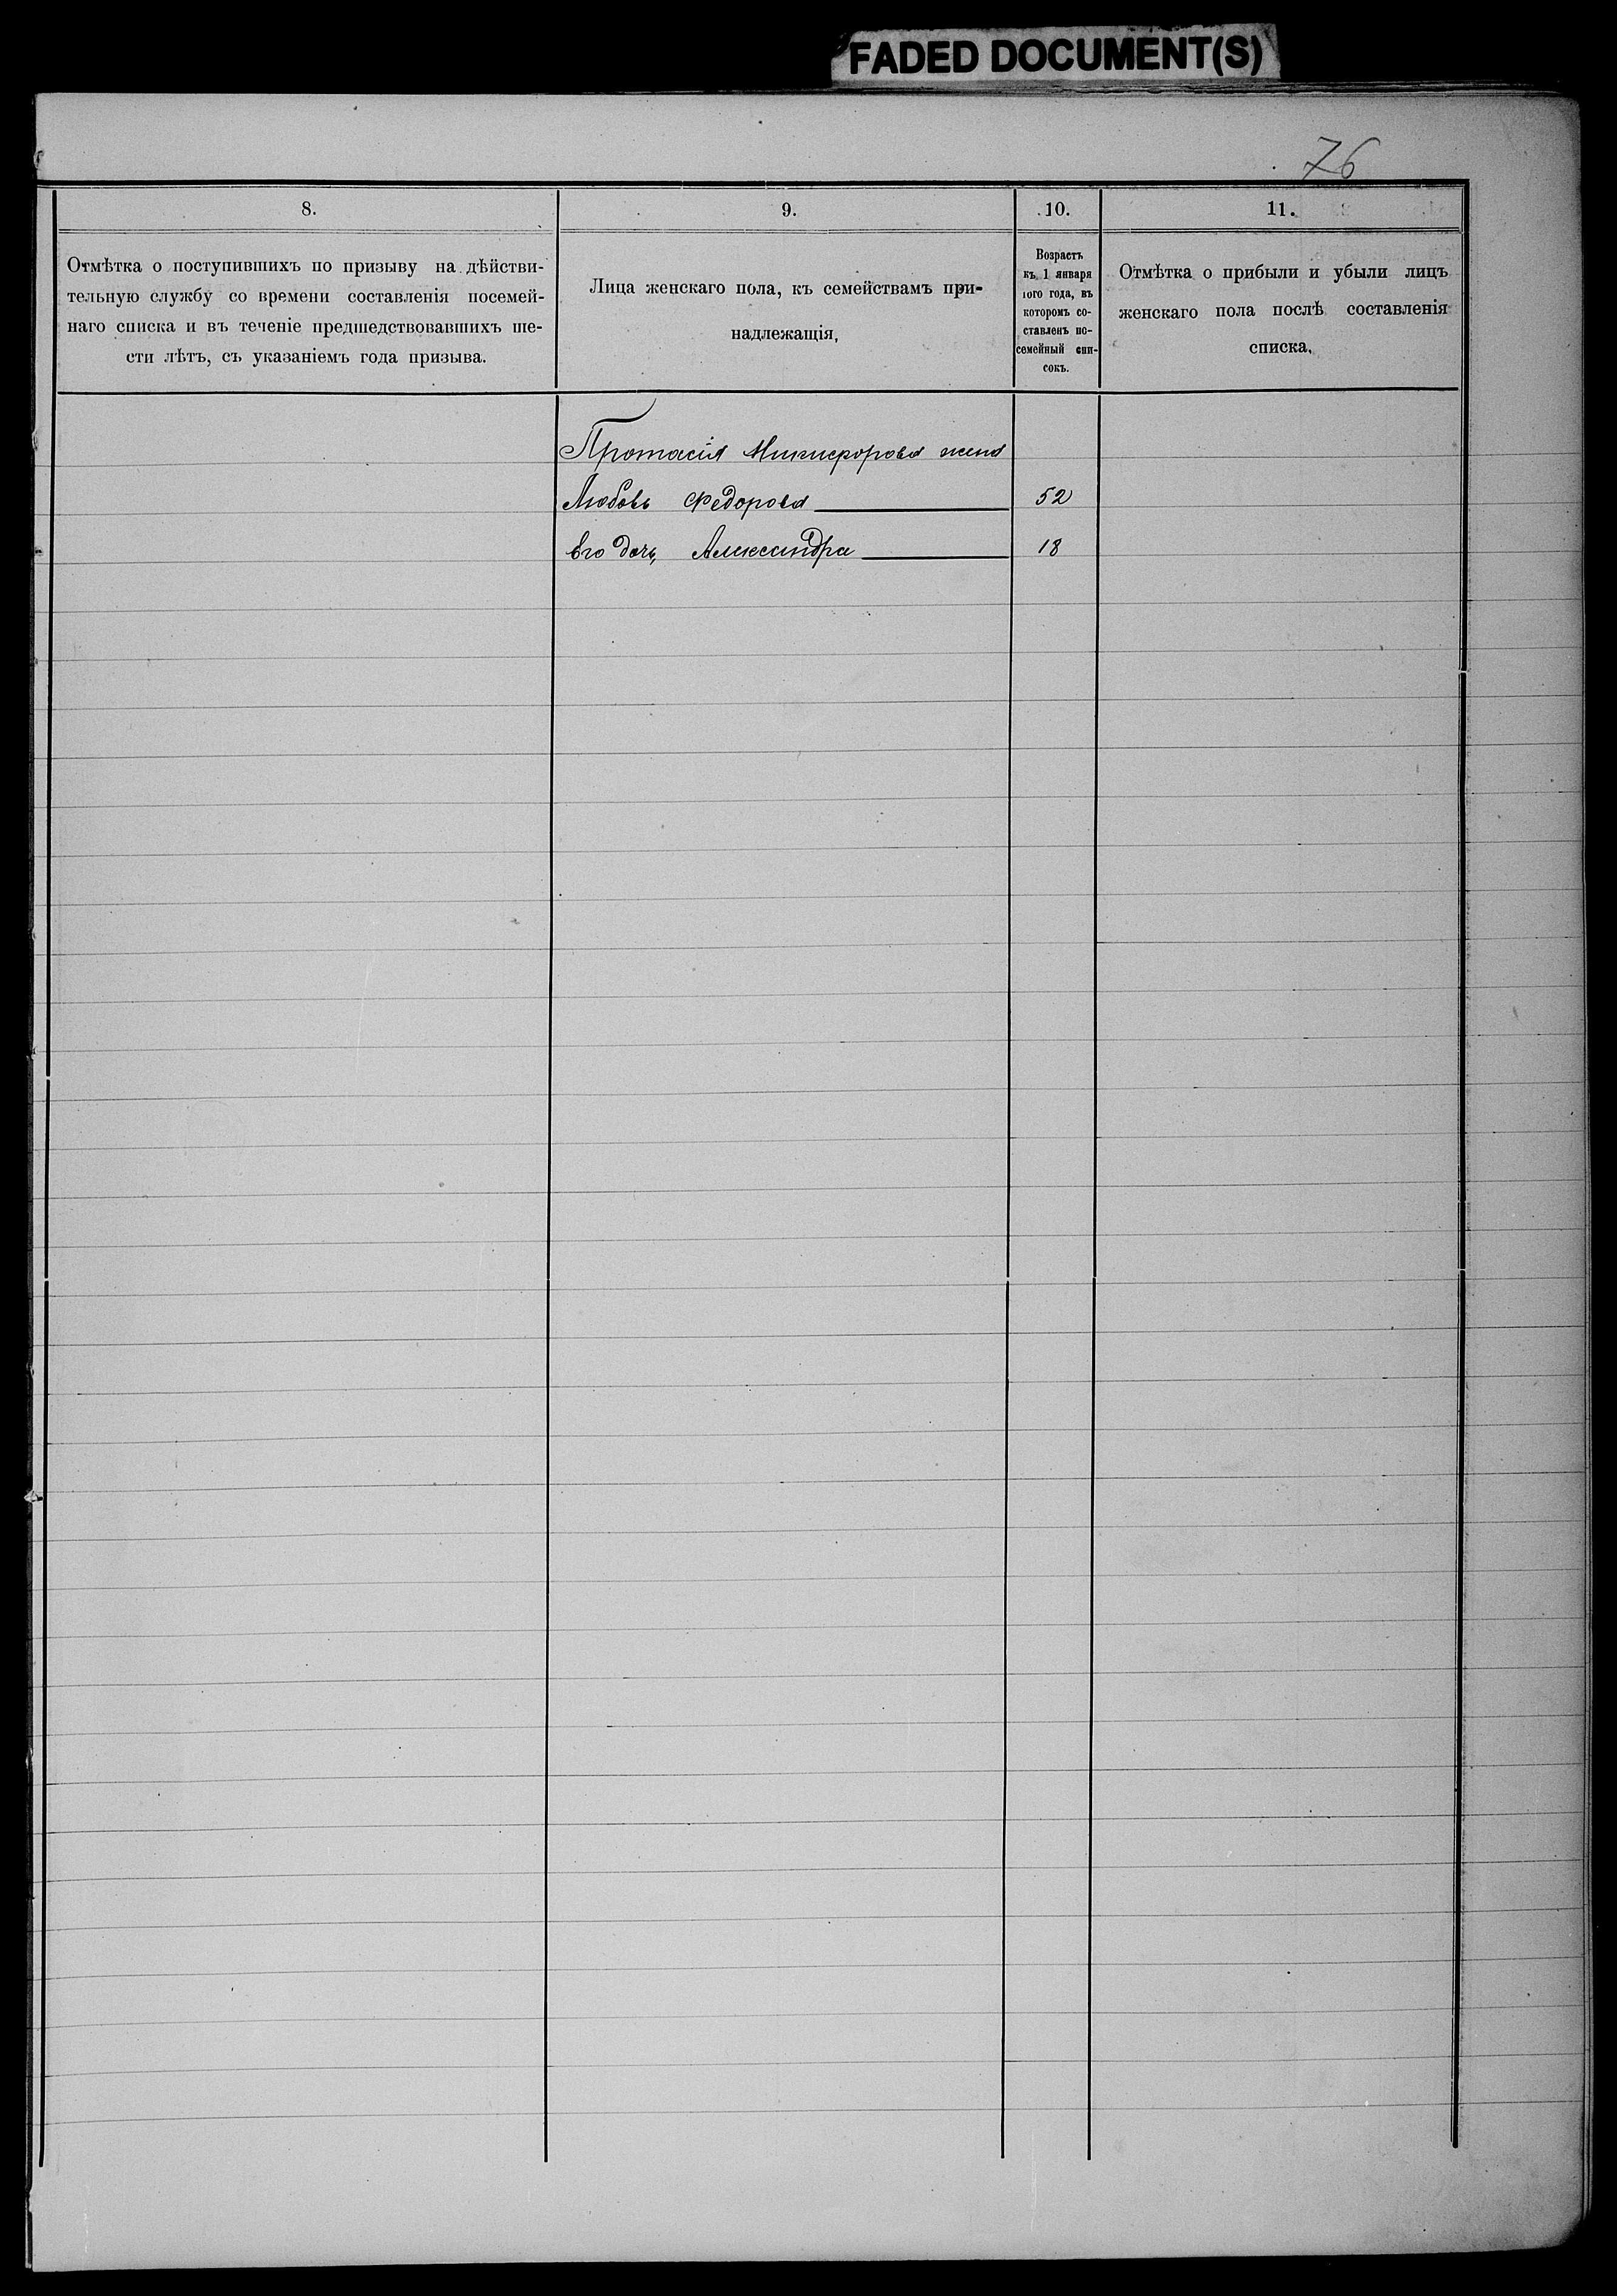 FADED DOCUMENT(S)
76
8.
Отмѣтка о поступившихъ по призыву на дѣйстви-
тельную службу со времени составленія посемей-
наго списка и въ теченіе предшедствовавшихъ ше-
сти лѣтъ, съ указаніемъ года призыва.
9.
Лица женскаго пола, къ семействамъ при-
надлежащія,
10.
Возрастъ
къ 1 января
того года, въ
которомъ со-
ставленъ по-
семейный спи-
сокъ.
11.
Отмѣтка о прибыли и убыли лицъ
женскаго пола послѣ составленія
списка.
Протасія Никифорова жена
Любовь Федорова 52
Его дочь, Александра 18